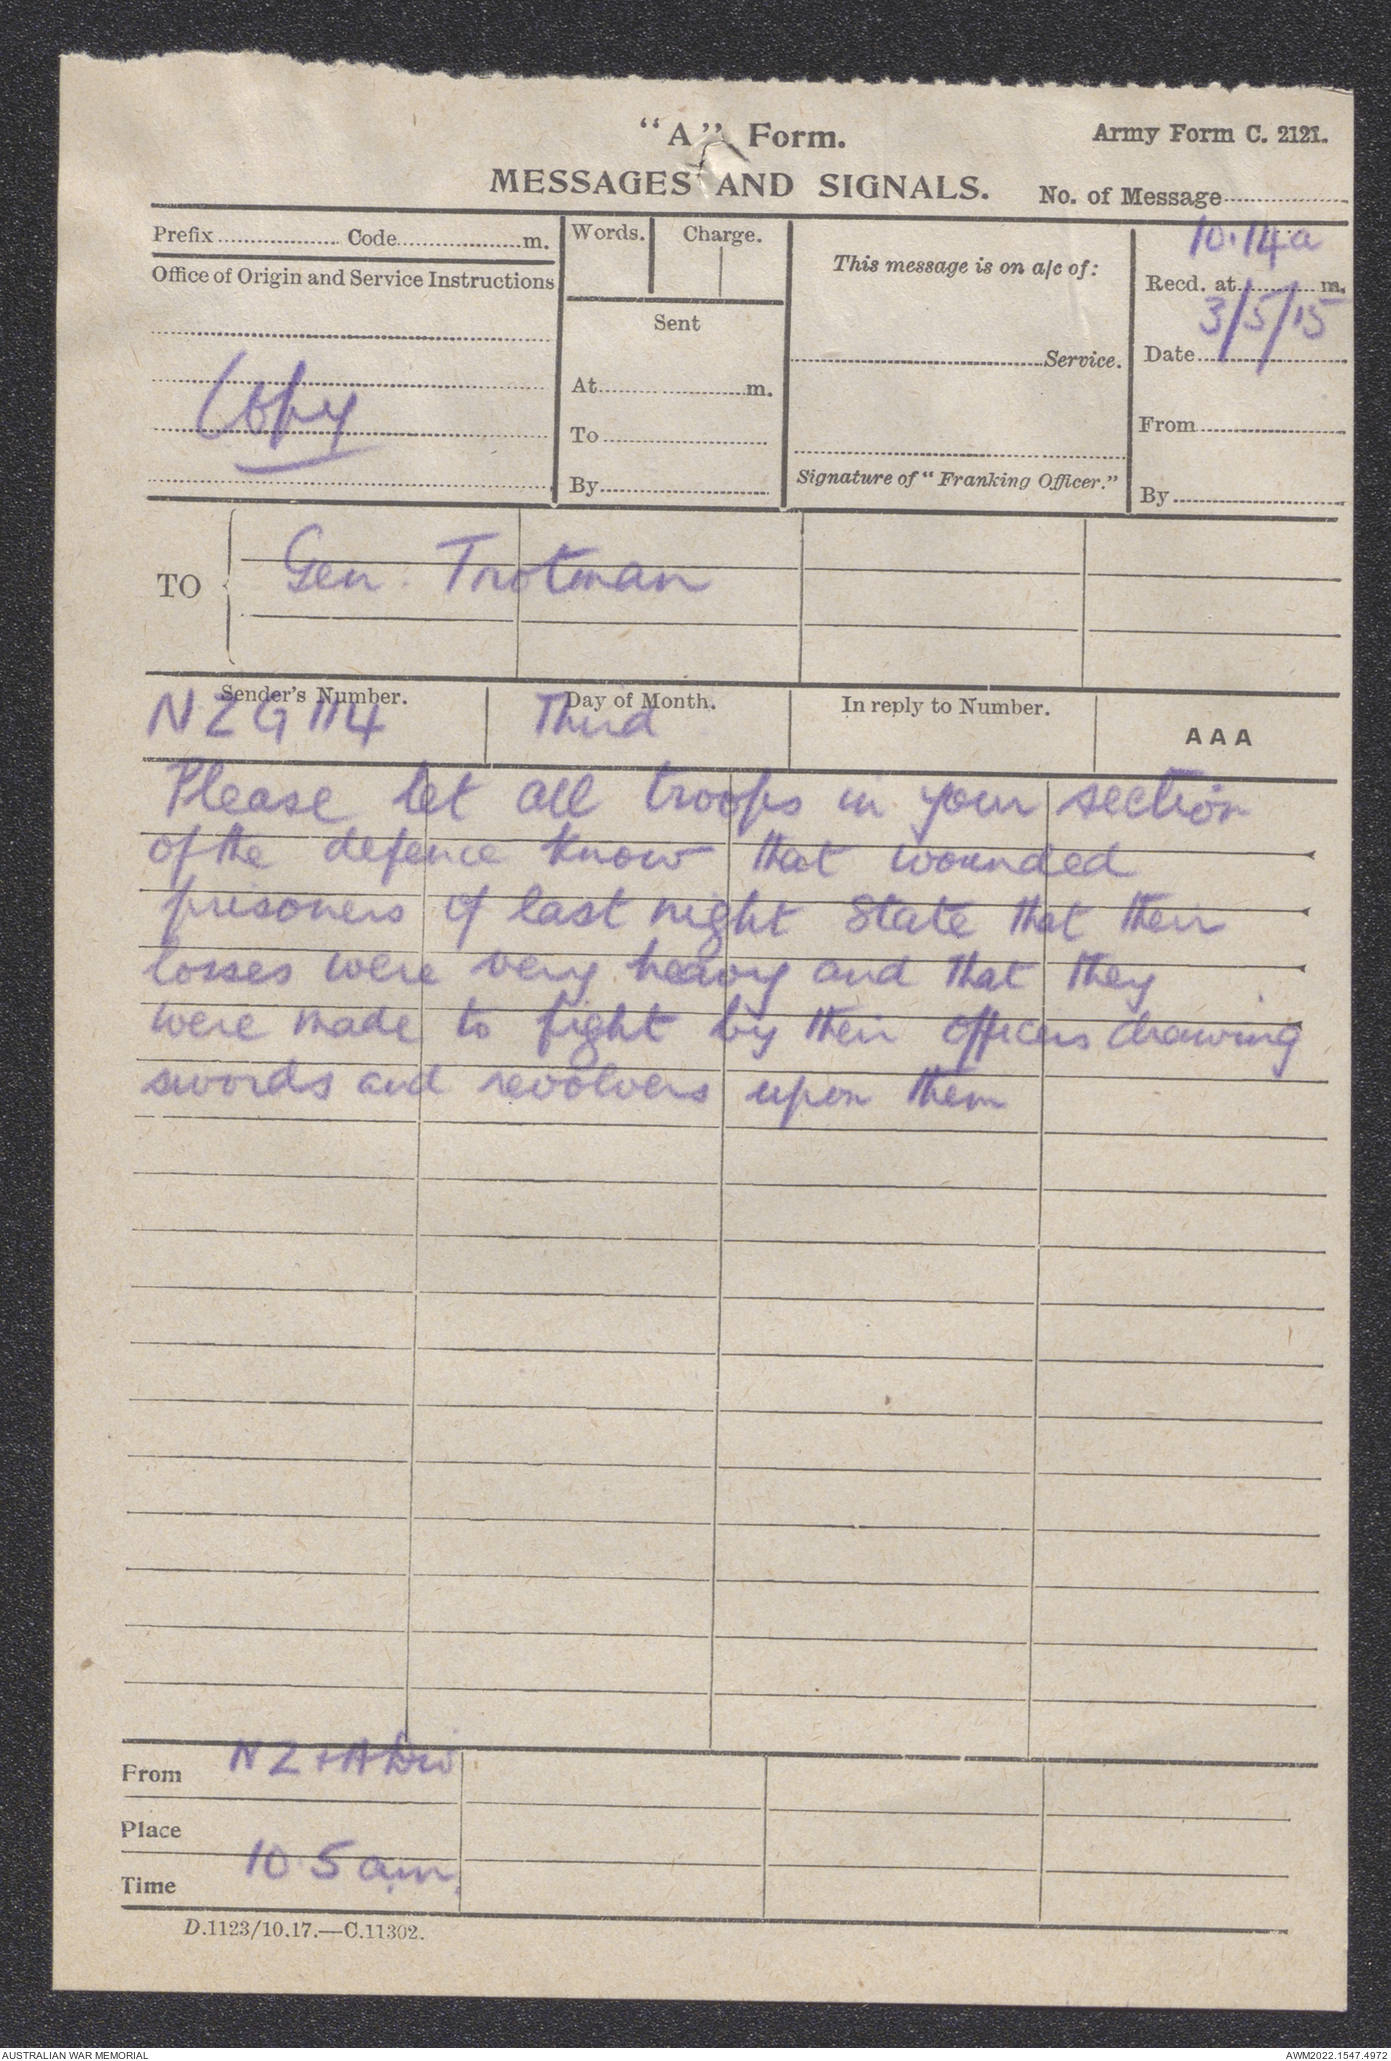 "A" Form.
Army Form C. 2121.
MESSAGES AND SIGNALS.
No. of Message
Prefix Code m.
Words. Charge.
This message is on a/c of:
10.14a
Recd. at m.
Office of Origin and Service Instructions
Copy
Sent
At m.
To
By
Service.
Signature of "Franking Officer."
3/5/15
Date
From
By
TO
Gen. Trotman
Sender's Number. Day of Month. In reply to Number. AAA
NZG 114 Third
Please let all troops in your section
of the defence know that wounded
prisoners of last night state that their
losses were very heavy and that they
were made to fight by their officers drawing
swords and revolvers upon them
From NZ + A Div
Place
Time 10.5 am.
D.1123/10.17.—C.11302.
AUSTRALIAN WAR MEMORIAL
AWM2022.1547.4972